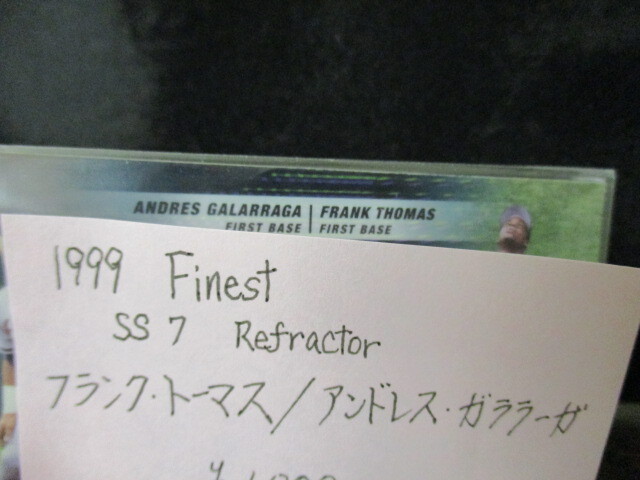 ANDRES GALARRAGA | FRANK THOMAS
FIRST BASE | FIRST BASE
1999 Finest
SS 7 Refractor
フランク・トーマス/アンドレス・ガララーガ